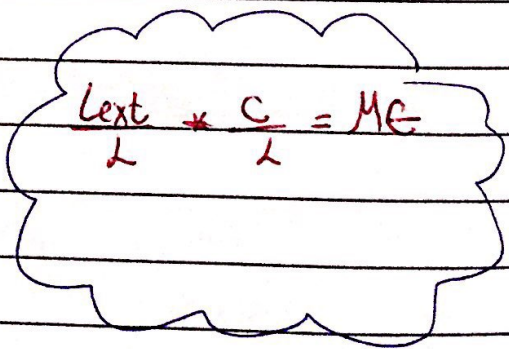 Lext/L * C/L = με